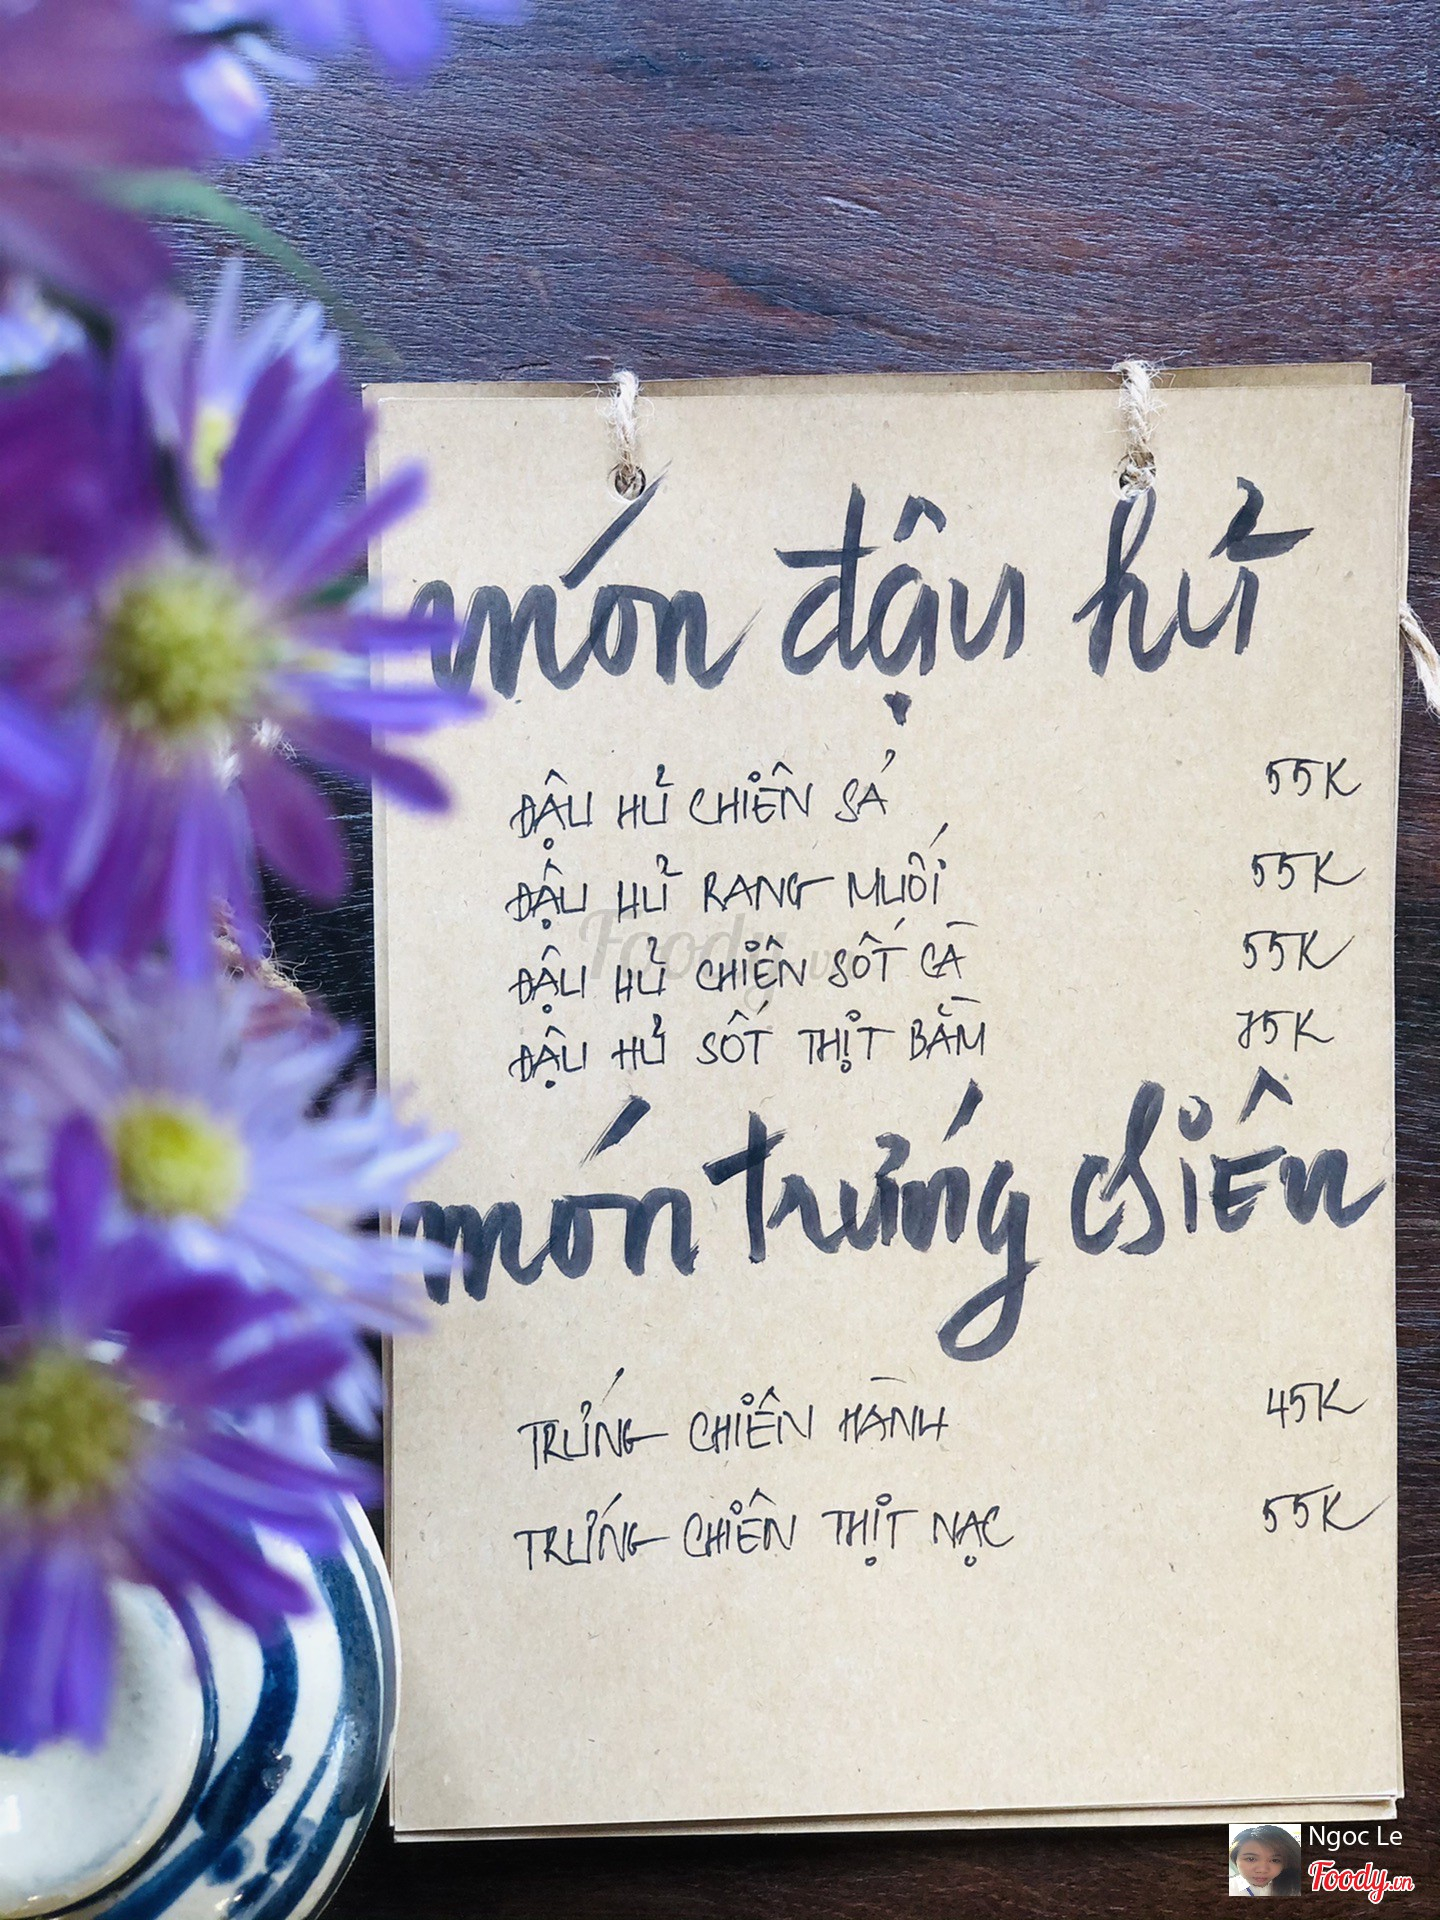 món đậu hủ
ĐẬU HỦ CHIÊN SẢ 55K
ĐẬU HỦ RANG MUỐI 55K
ĐẬU HỦ CHIÊN SỐT CÀ 55K
ĐẬU HỦ SỐT THỊT BẰM 75K
món trứng chiên
TRỨNG CHIÊN HÀNH 45K
TRỨNG CHIÊN THỊT NẠC 55K
Foody.vn
Ngoc Le
Foody.vn